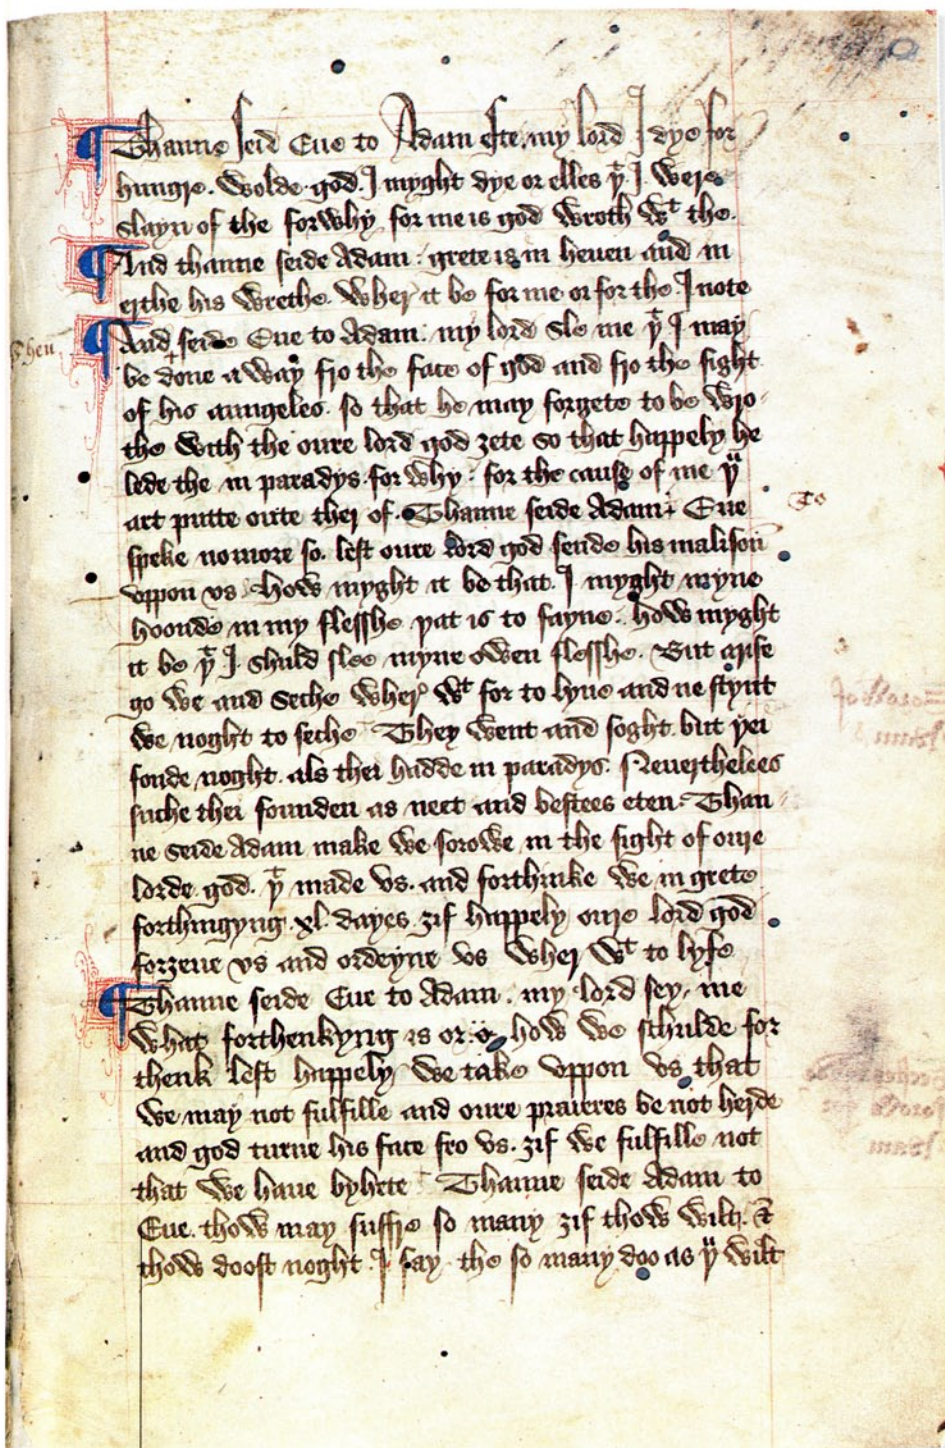 ¶ Thanne seid Eue to Adam efte my lord I dye for
hungre. Wolde god. I myght dye or elles yͭ I were
slayn of the forwhy for me is god wroth wᵗ the.
¶ And thanne seide Adam: grete is in heuen and in
erthe his wrethe. Wher it be for me or for the I note
¶ And seide Eue to Adam: my lord sle me yͭ I may
be done a way fro the face of god and fro the sight
of his aungeles. so that he may forgete to be wro-
the with the oure lord god ȝete so that happely he
lede the in paradys. for why: for the cause of me yᵘ
art putte oute ther of. Thanne seide Adam+ Eue
To
speke no more so. lest oure lord god sende his malison
vppon vs. How myght it be that. I myght myne
hoonde in my flesshe yat is to sayne. how myght
it be yͭ I. shuld slee myne owen flesshe. But arise
go we and seche wher wᵗ for to lyue and ne stynt
we noght to seche They went and soght. but yei
fonde noght. als thei hadde in paradys. Neuerthelees
suche thei founden as neet and bestees eten. Than-
ne seide Adam make we sorowe in the sight of oure
lorde god. yͭ made vs. and forthinke we in grete
forthingyng .xl. dayes. ȝif happely oure lord god
forȝeue vs and ordeyne vs wher wᵗ to lyfe
¶ Thanne seide Eue to Adam. my lord sey me
what forthenkyng is or how we schulde for
thenk lest happely we take vppon vs that
we may not fulfille and oure praieres be not herde
and god turne his face fro vs. ȝif we fulfille not
that we haue byhete Thanne seide Adam to
Eue. thow may suffre so many ȝif thow wilt. &
thow doost noght. I say the so many doo as yᵘ wilt